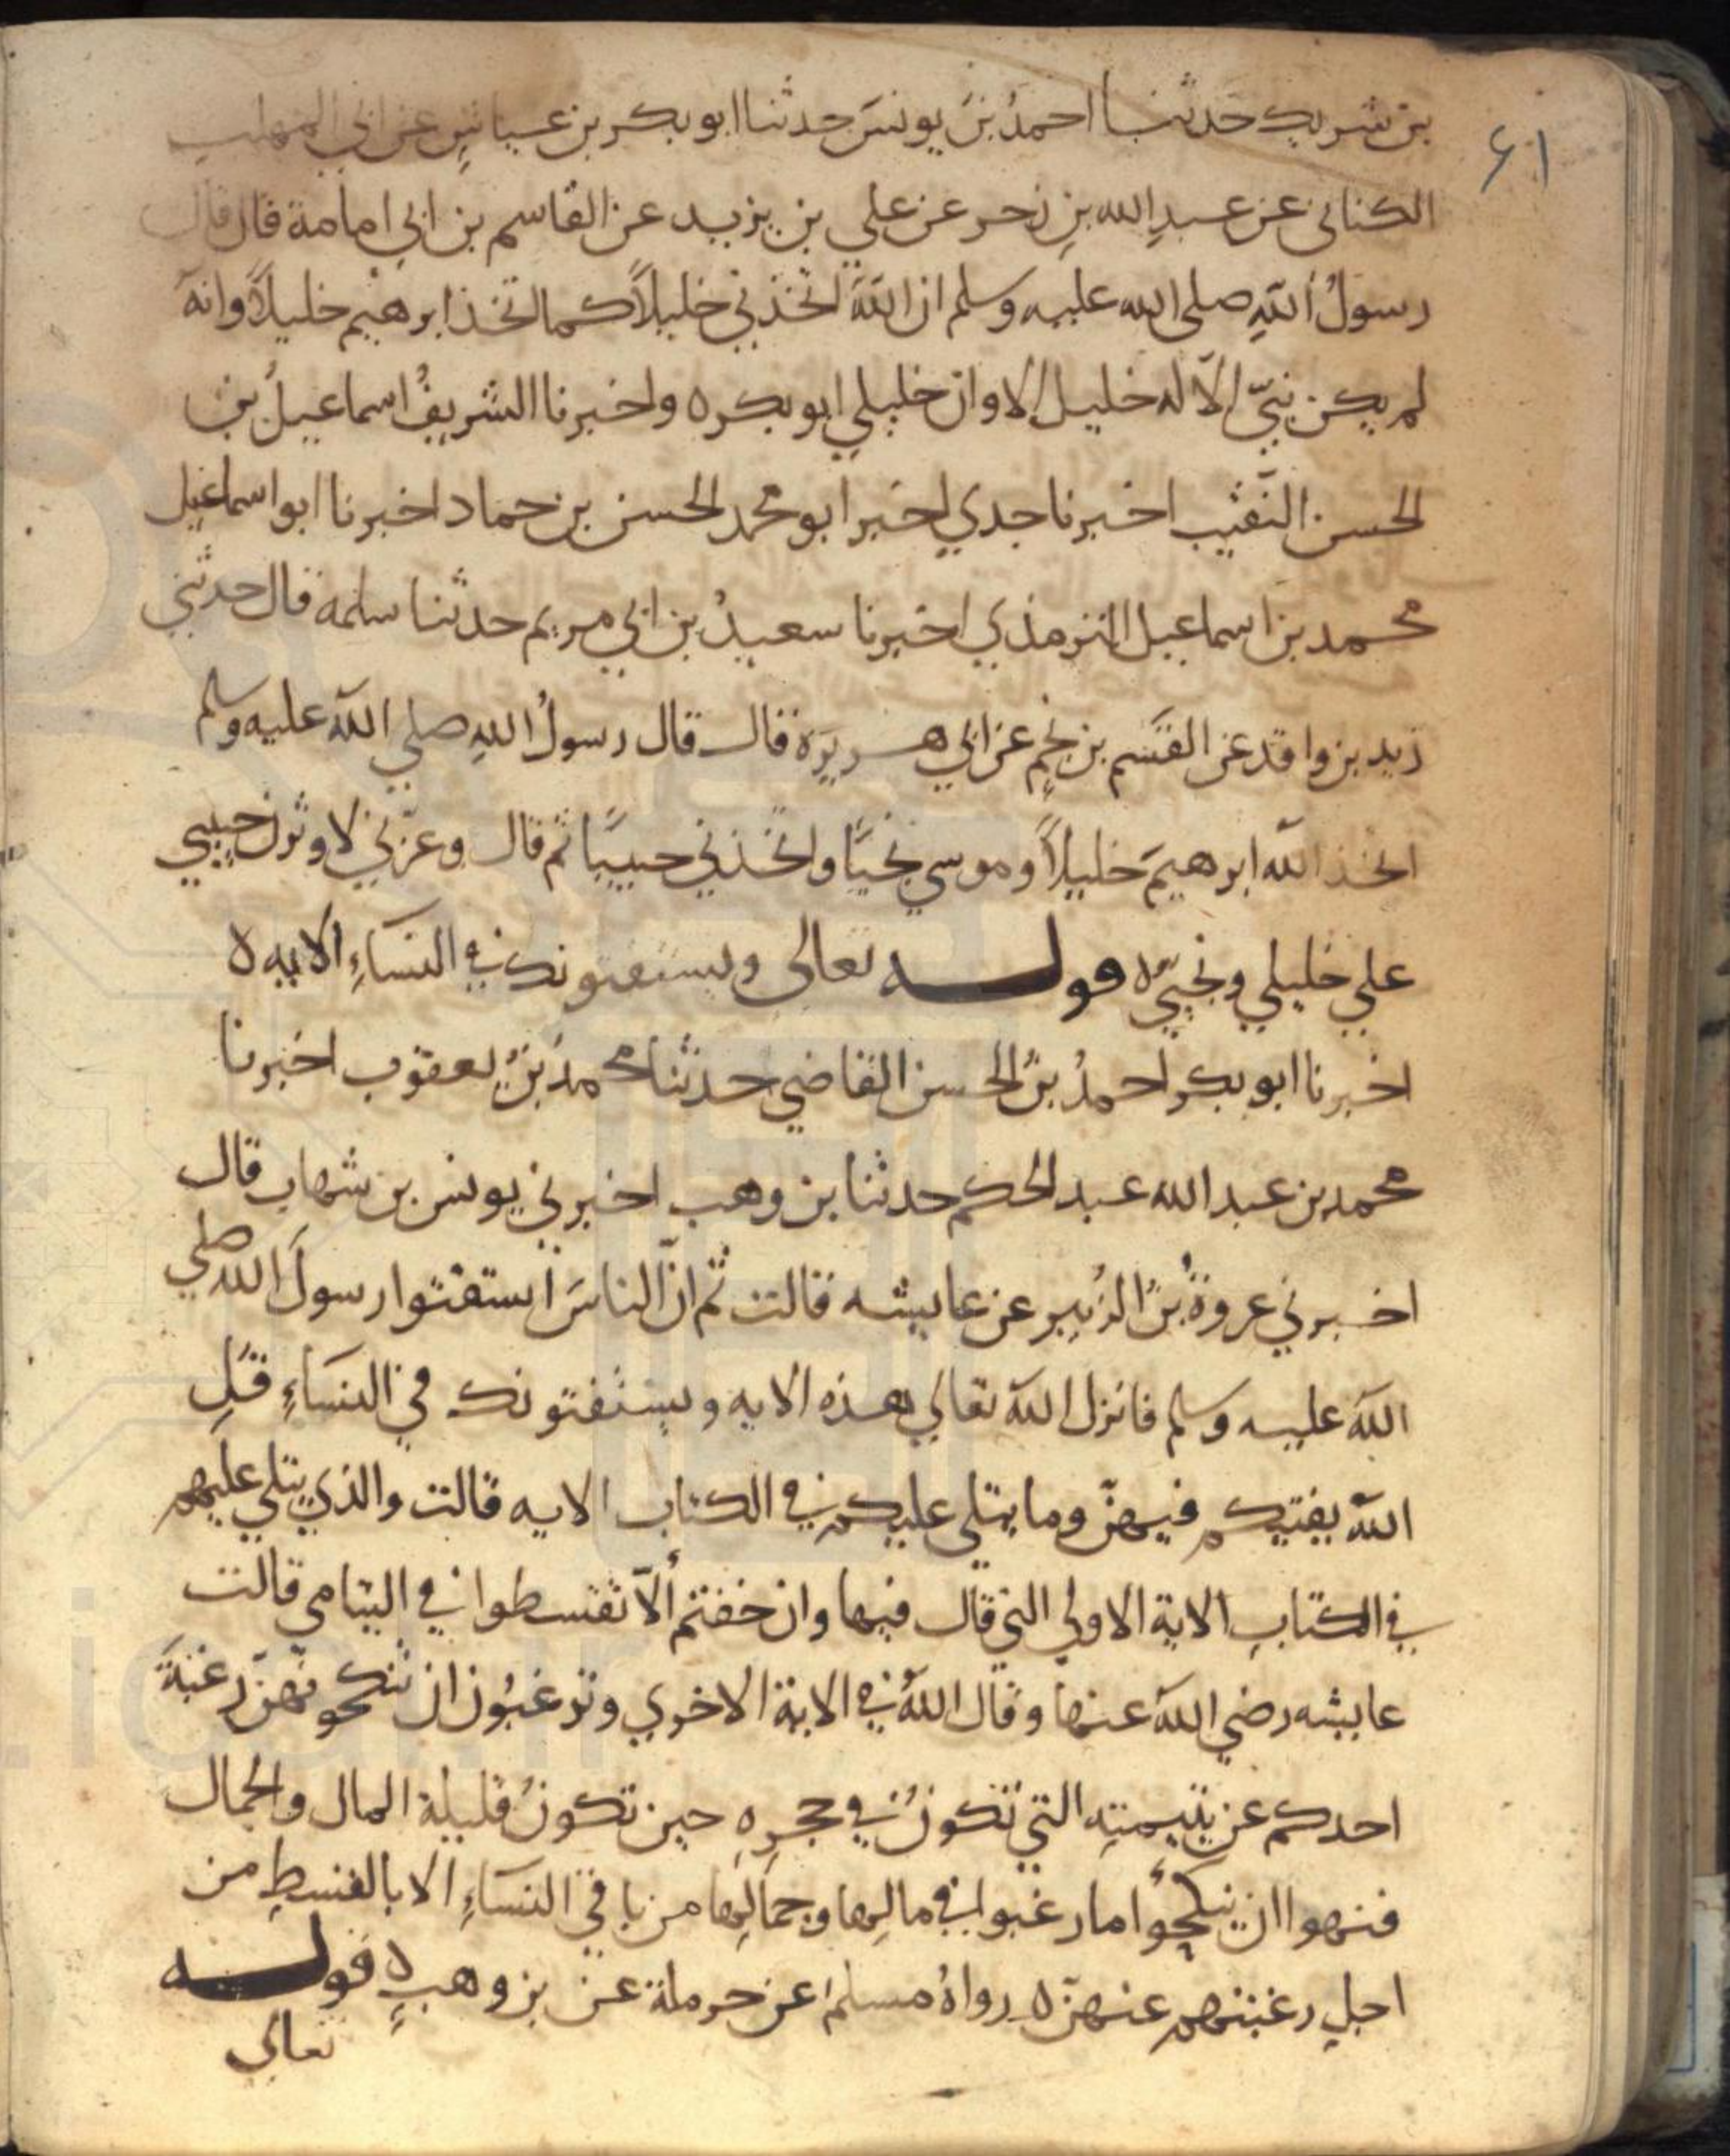 ٦١
بن شريك حدثنا احمدُ بنُ يونسَ حدثنا ابو بكر بن عياشٍ عن ابي المهلب
الكناني عن عبدِ الله بنِ زحر عن علي بن يزيد عن القاسم بن ابي امامة قال قال
رسولُ اللهِ صلى الله عليه وسلم ان اللهَ اتخذني خليلاً كما اتخذ ابرهيم خليلاً وانه
لم يكن نبيّ الاّ له خليل الا وان خليلي ابو بكر ه واخبرنا الشريفُ اسماعيلُ بن
الحسن النَّقيب اخبرنا جدي اخبر ابو محمد الحسن بن حماد اخبرنا ابو اسماعيل
محمد بن اسماعيل الترمذي اخبرنا سعيدُ بن ابي مريم حدثنا سلمه قال حدثني
زيد بن واقد عن القسَم بن نجمٍ عن ابي هريرَة قال قال رسولُ اللهِ صلي الله عليه وسلم
اتخذ الله ابرهيمَ خليلاً وموسي نجيًّا واتخذني حبيبًا ثم قال وعزّتي لاوثرن حبيبي
علي خليلي ونجيّ ه قوله تعالى ويستفتونك في النسَاءِ الايه ه
اخبرنا ابو بكر احمدُ بنُ الحسن القاضي حدثنا محمدُ بنُ يعقوب اخبرنا
محمد بن عبد الله عبد الحكم حدثنا بن وهب اخبرني يونس بن شهاب قال
اخبرني عروةُ بنُ الزُبير عن عايشه قالت ثم انّ الناسَ استفتوا رسولَ الله صلي
الله عليه وسلم فانزل الله تعالي هذه الايه ويستفتونك في النسَاءِ قلِ
الله يفتيكم فيهنّ وما يتلى عليكم في الكتاب الايه قالت والذي يتلي عليهم
في الكتابِ الاية الاولي التي قال فيها وان خفتم ألاّ تقسطوا في اليتامى قالت
عايشه رضي الله عنها وقال اللهُ في الاية الاخري وترغبُون ان تنكحوهنّ رغبةَ
احدكم عن يتيمتِه التي تكونُ في حجرِهِ حين تكونُ قليلة المال والجمال
فنهوا ان ينكحُوا ما رغبوا في مالِها وجمالِها من باقي النسَاءِ الا بالقسطِ من
اجلِ رغبتهم عنهنّ ه رواهُ مسلم عن حرملة عن بن وهبٍ ه قوله
تعالى